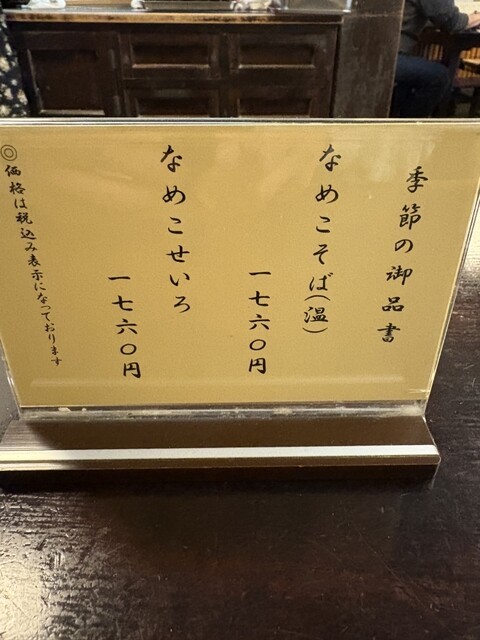 季節の御品書
なめこそば(温)
一七六〇円
なめこせいろ
一七六〇円
◎価格は税込み表示になっております